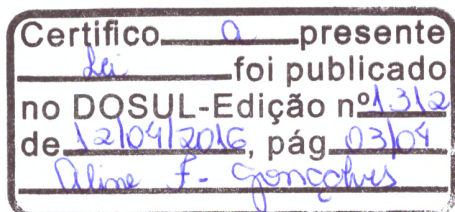 Certifico a presente
Lei foi publicado
no DOSUL-Edição nº 1.312
de 12/04/2016, pág 03/04
Aline F. Gonçalves